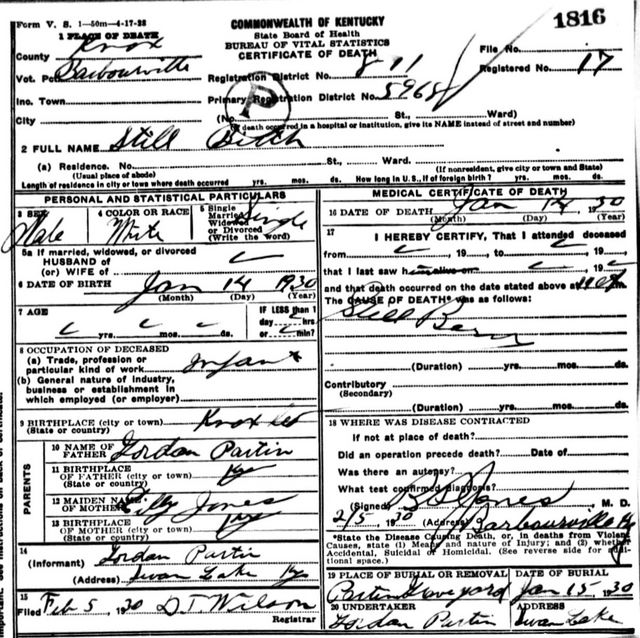 Form V. S. 1—50m—4-17-28
COMMONWEALTH OF KENTUCKY
State Board of Health
BUREAU OF VITAL STATISTICS
CERTIFICATE OF DEATH
1816
1 PLACE OF DEATH
County Knox
Vot. Barbourville
Inc. Town
City
Registration District No. 871
Primary Registration District No. 5965
(No. St., Ward)
(If death occurred in a hospital or institution, give its NAME instead of street and number)
File No.
Registered No. 17
P
2 FULL NAME Still Birth
(a) Residence. No. St., Ward.
(Usual place of abode) (If nonresident, give city or town and State)
Length of residence in city or town where death occurred yrs. mos. ds. How long in U.S., if of foreign birth? yrs. mos. ds.
PERSONAL AND STATISTICAL PARTICULARS
3 SEX Male
4 COLOR OR RACE White
5 Single Married Widowed or Divorced (Write the word) Single
5a If married, widowed, or divorced
HUSBAND of
(or) WIFE of
6 DATE OF BIRTH Jan 14 1930
(Month) (Day) (Year)
7 AGE
yrs. mos. ds.
IF LESS than 1
day hrs.
or min?
8 OCCUPATION OF DECEASED
(a) Trade, profession or
particular kind of work Infant
(b) General nature of industry,
business or establishment in
which employed (or employer)
9 BIRTHPLACE (city or town) Knox Co
(State or country)
PARENTS
10 NAME OF
FATHER Jordan Partin
11 BIRTHPLACE
OF FATHER (city or town) Ky
(State or country)
12 MAIDEN NAME
OF MOTHER Lilly Jones
13 BIRTHPLACE
OF MOTHER (city or town) Ky
(State or country)
14
(Informant) Jordan Partin
(Address) Swan Lake Ky
15
Filed Feb 5, 1930 D.T. Wilson
Registrar
MEDICAL CERTIFICATE OF DEATH
16 DATE OF DEATH Jan 14 1930
(Month) (Day) (Year)
17
I HEREBY CERTIFY, That I attended deceased
from 19 to 19
that I last saw h alive on 19
and that death occurred on the date stated above at
The CAUSE OF DEATH* was as follows:
Still Born
(Duration) yrs. mos. ds.
Contributory
(Secondary)
(Duration) yrs. mos. ds.
18 WHERE WAS DISEASE CONTRACTED
If not at place of death?
Did an operation precede death? Date of
Was there an autopsy?
What test confirmed diagnosis?
(Signed) Jones M. D.
2/5, 1930 (Address) Barbourville Ky
*State the Disease Causing Death, or, in deaths from Violent
Causes, state (1) Means and nature of Injury; and (2) whether
Accidental, Suicidal or Homicidal. (See reverse side for additional space.)
19 PLACE OF BURIAL OR REMOVAL
Partin Graveyard
DATE OF BURIAL
Jan 15 1930
20 UNDERTAKER
Jordan Partin
ADDRESS
Swan Lake